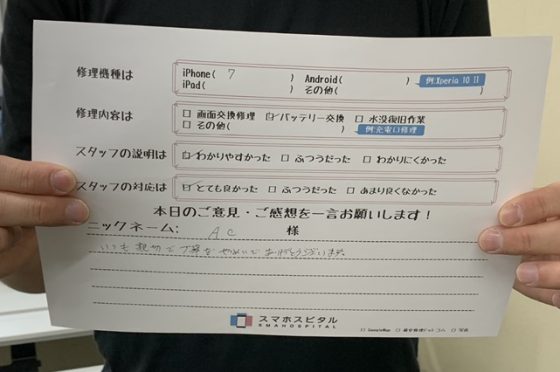 修理機種は
iPhone( 7 ) Android( ) 例:Xperia 10 II
iPad( ) その他( )
修理内容は
□ 画面交換修理 ☑ バッテリー交換 □ 水没復旧作業
□ その他( ) 例:充電口修理
スタッフの説明は ☑ わかりやすかった □ ふつうだった □ わかりにくかった
スタッフの対応は ☑ とても良かった □ ふつうだった □ あまり良くなかった
本日のご意見・ご感想を一言お願いします!
ニックネーム: AC 様
いつも親切で丁寧な ありがとうございます
スマホスピタル
SMAHOSPITAL
□ GoogleMap □ □ 写真